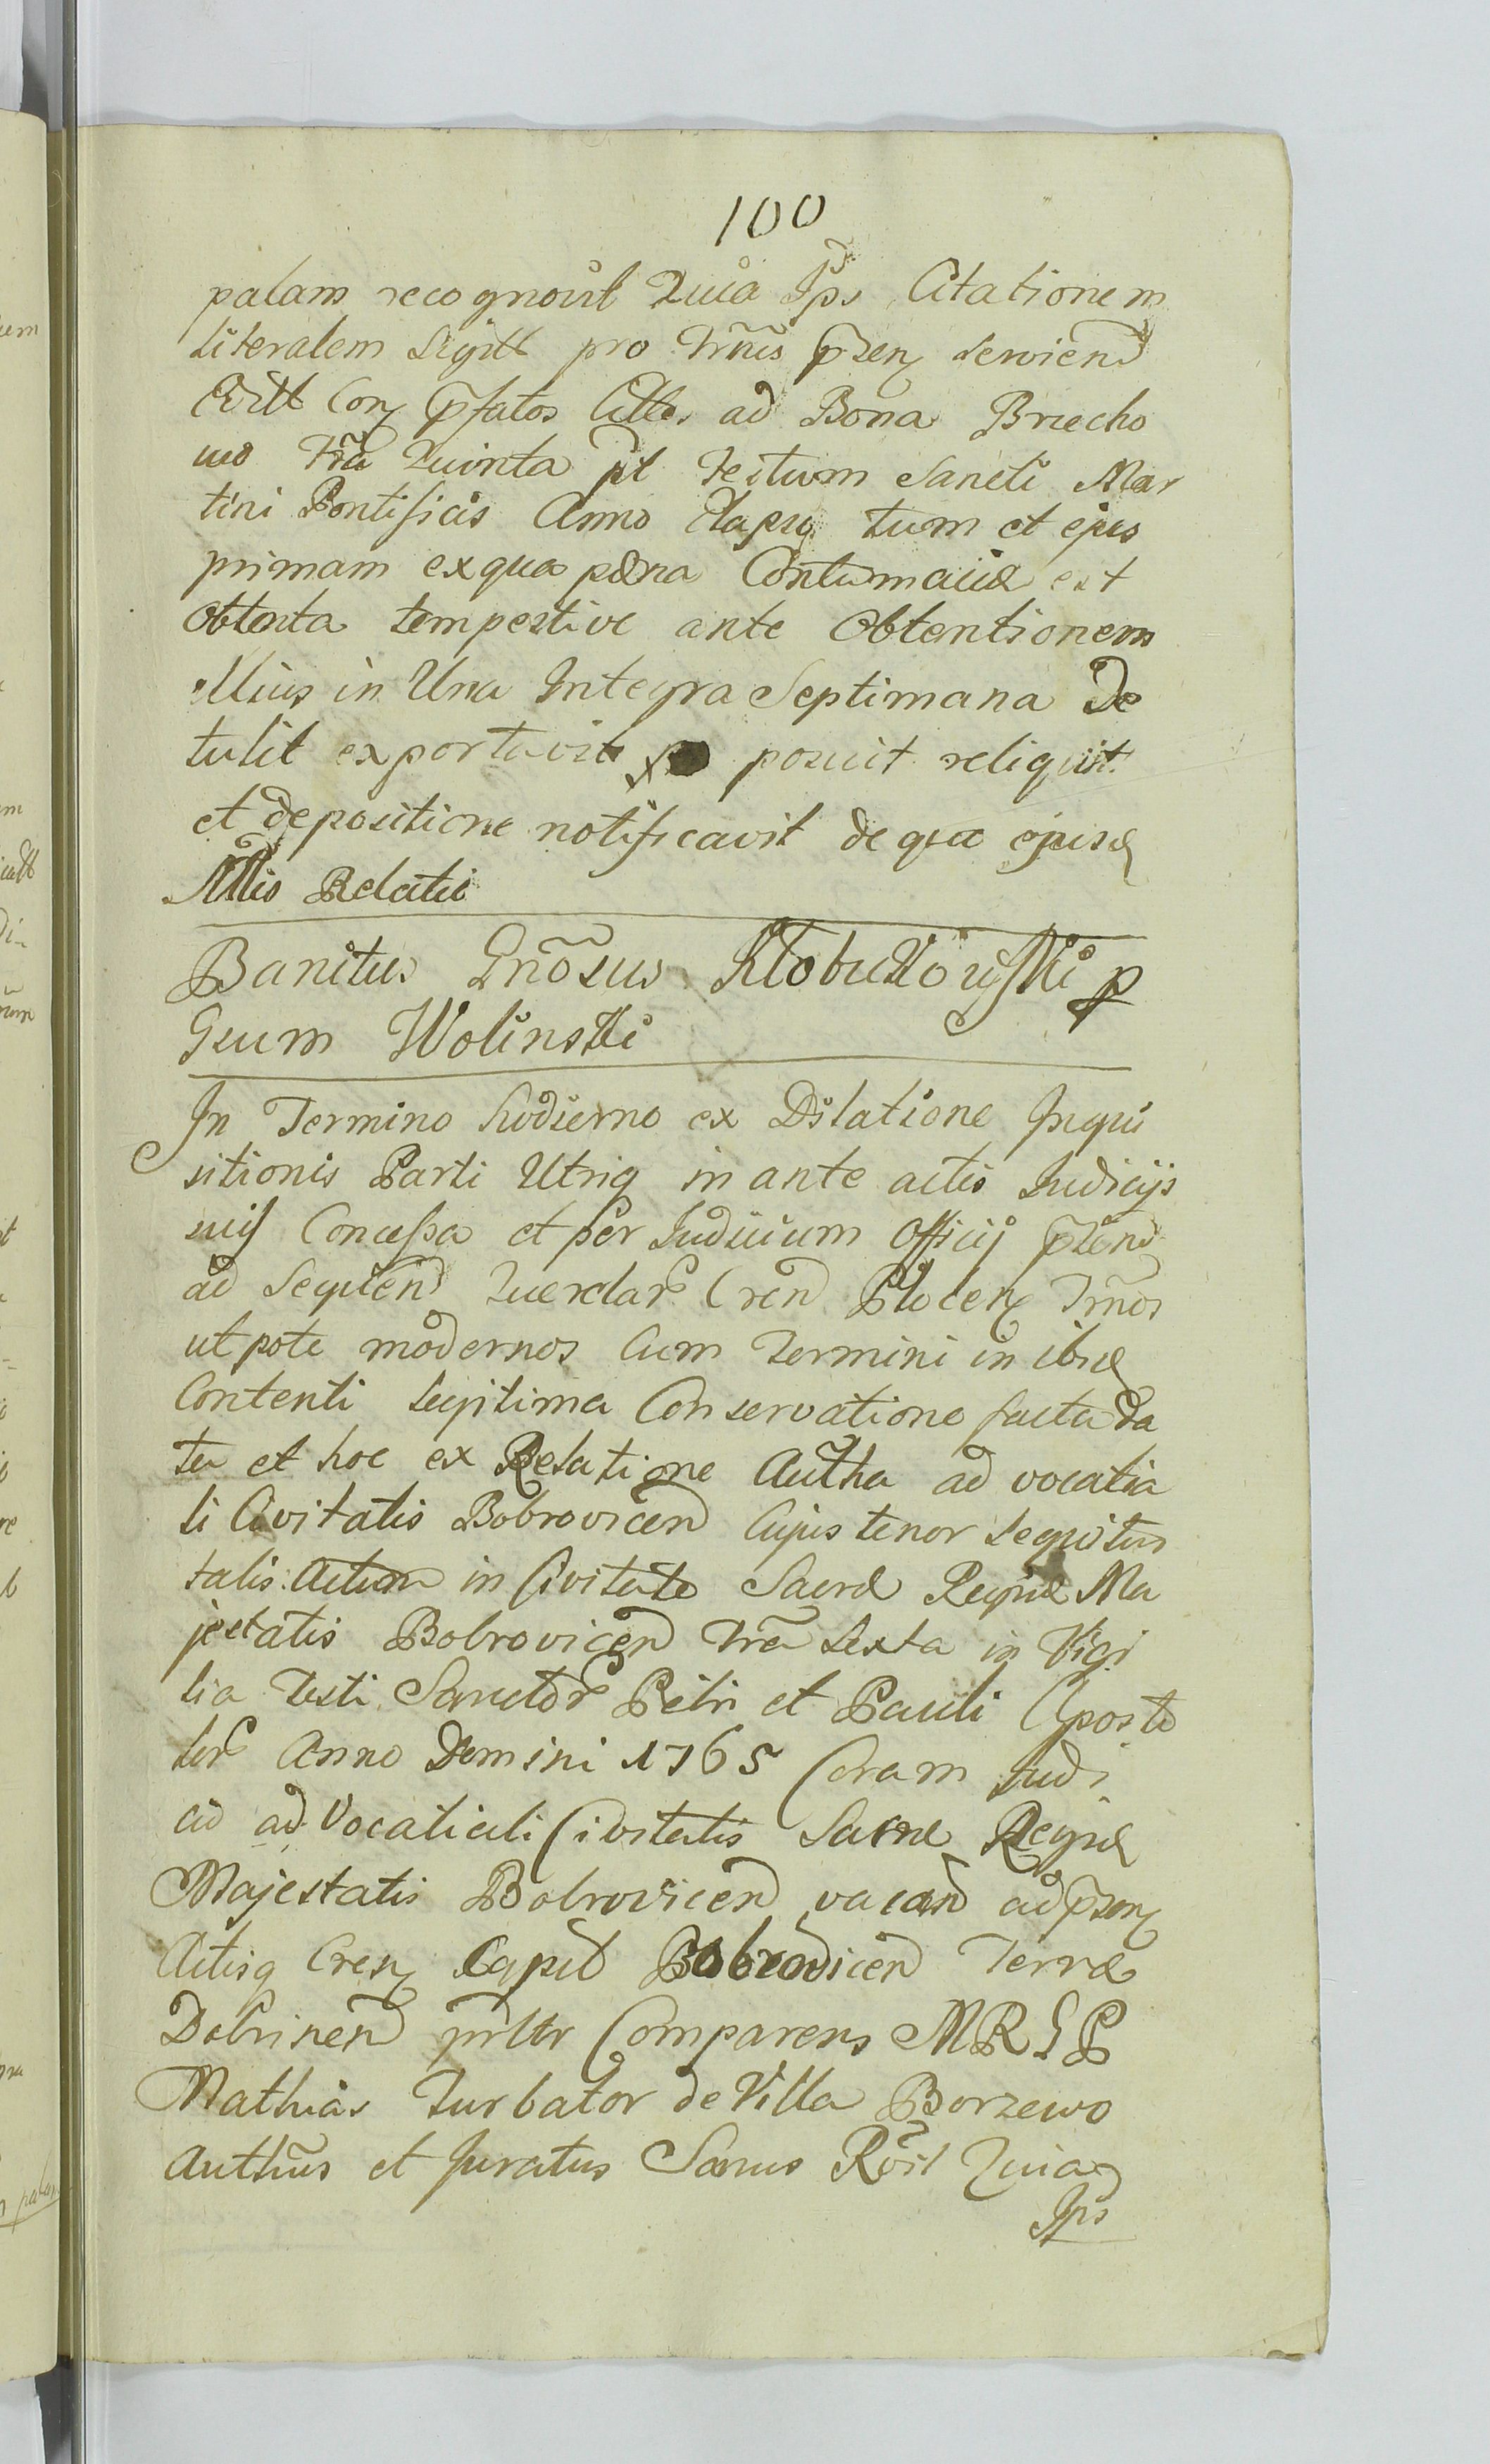 100
palam recognovit Quia Ips Citationem
Literalem Sigill pro Trms pzen serviend
Edill Con pfatos Citto ad Bona Brzecho
wo fria Quinta pt festum Sancti Mar
tini Pontificis Anno Elapso tum et ejus
primam ex qua pœna Contumaciæ est
obtenta tempestive ante obtentionem
illius in Una Integra Septimana De
tulit exportavit posuit reliquit
et depositione notificavit de qua ejusd
Mlis Relatio
Banitus Gnosus Kłobukowski p
Gsum Wolinski
In Termino hodierno ex Dilatione Inqui
sitionis Parti Utriq in ante actis Judicijs
suis Concessa et per Judicium Officij pzend
ad Sequend Querelar Cren Plocen Trmos
ut pote modernos Cum Termini in ibid
Contenti Legitima Conservatione facta da
ta et hoc ex Relatione Autha ad vocatia
li Civitatis Bobrovicen Cujus tenor sequitur
talis: Actum in Civitate Sacræ Regiæ Ma
jestatis Bobrovicen fria Sexta in Vigi
lia Festi Sanctor Petri et Pauli Aposto
lor Anno Domini 1765 Coram Judi
cio ad Vocatiali Civitatis Sacræ Regiæ
Majestatis Bobrovicen vacan ad pzen
Actisq Cren Capit Bobrovicen Terræ
Dobrinen prlltr Comparens MRGP
Mathias Turbator de Villa Borzewo
Authus et Juratus Sanus Rvit Quia
Ips